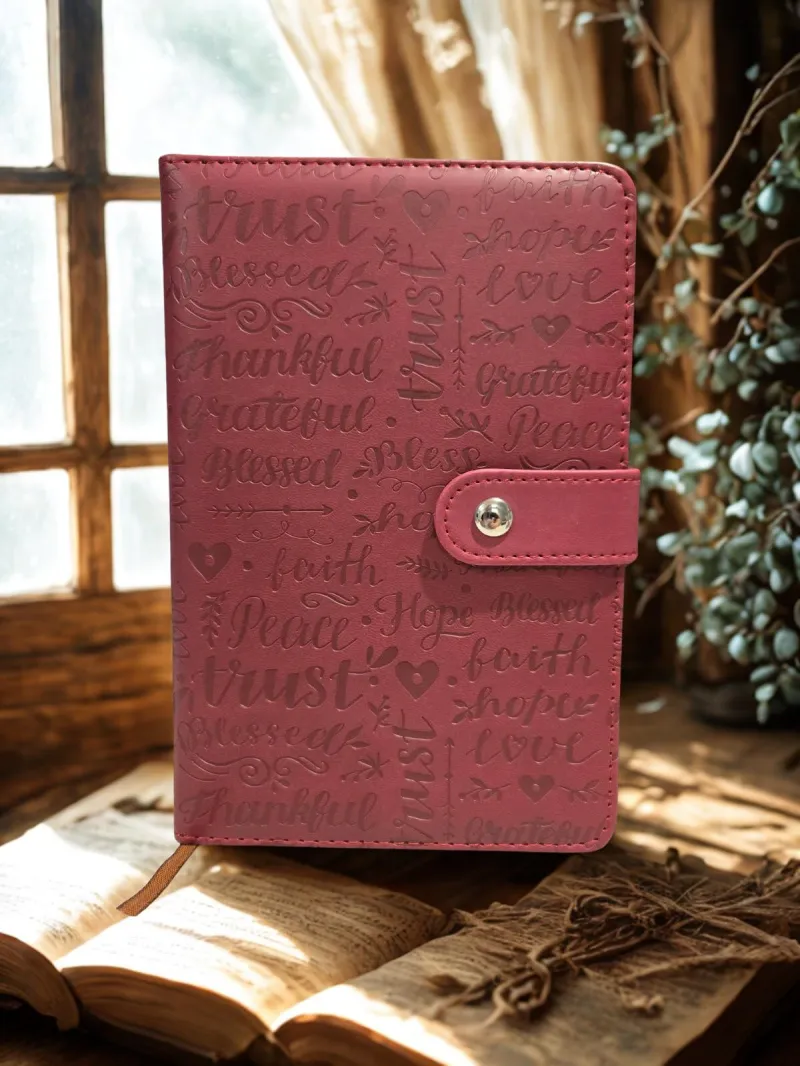 trust
Blessed
Thankful
Grateful
Blessed
trust
faith
hope
love
Grateful
Peace
Bless
ho
faith
Peace
trust
Blessed
Thankful
Hope
trust
Blessed
faith
hope
love
Grateful